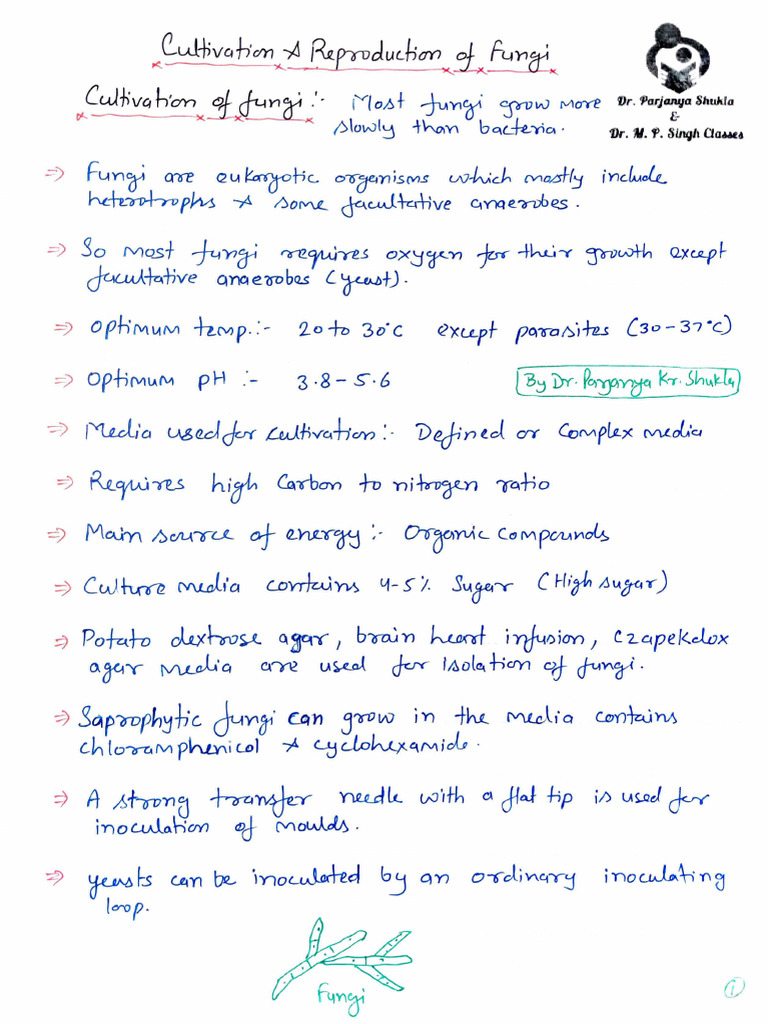 Cultivation & Reproduction of Fungi
Cultivation of fungi:- Most fungi grow more
slowly than bacteria.
Dr. Parjanya Shukla
&
Dr. M. P. Singh Classes
⇒ Fungi are eukaryotic organisms which mostly include
heterotrophs & some facultative anaerobes.
⇒ So most fungi requires oxygen for their growth except
facultative anaerobes (yeast).
⇒ Optimum temp.:- 20 to 30°C except parasites (30-37°C)
⇒ Optimum pH :- 3.8-5.6
By Dr. Parjanya Kr. Shukla
⇒ Media used for cultivation:- Defined or complex media
⇒ Requires high Carbon to nitrogen ratio
⇒ Main source of energy:- Organic compounds
⇒ Culture media contains 4-5% Sugar (High sugar)
⇒ Potato dextrose agar, brain heart infusion, czapekdox
agar media are used for isolation of fungi.
⇒ Saprophytic fungi can grow in the media contains
chloramphenicol & cyclohexamide.
⇒ A strong transfer needle with a flat tip is used for
inoculation of moulds.
⇒ yeasts can be inoculated by an ordinary inoculating
loop.
Fungi
1